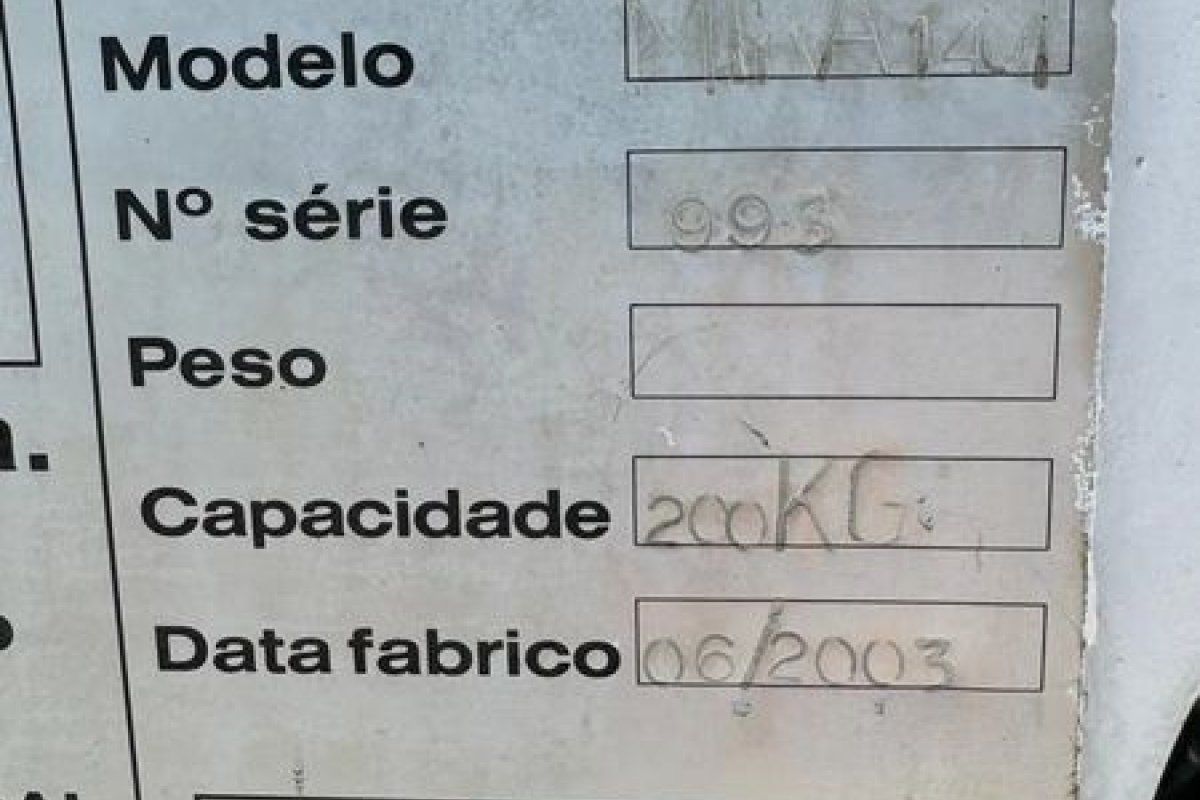 Modelo
Nº série 99.3
Peso
Capacidade 200KG
Data fabrico 06/2003